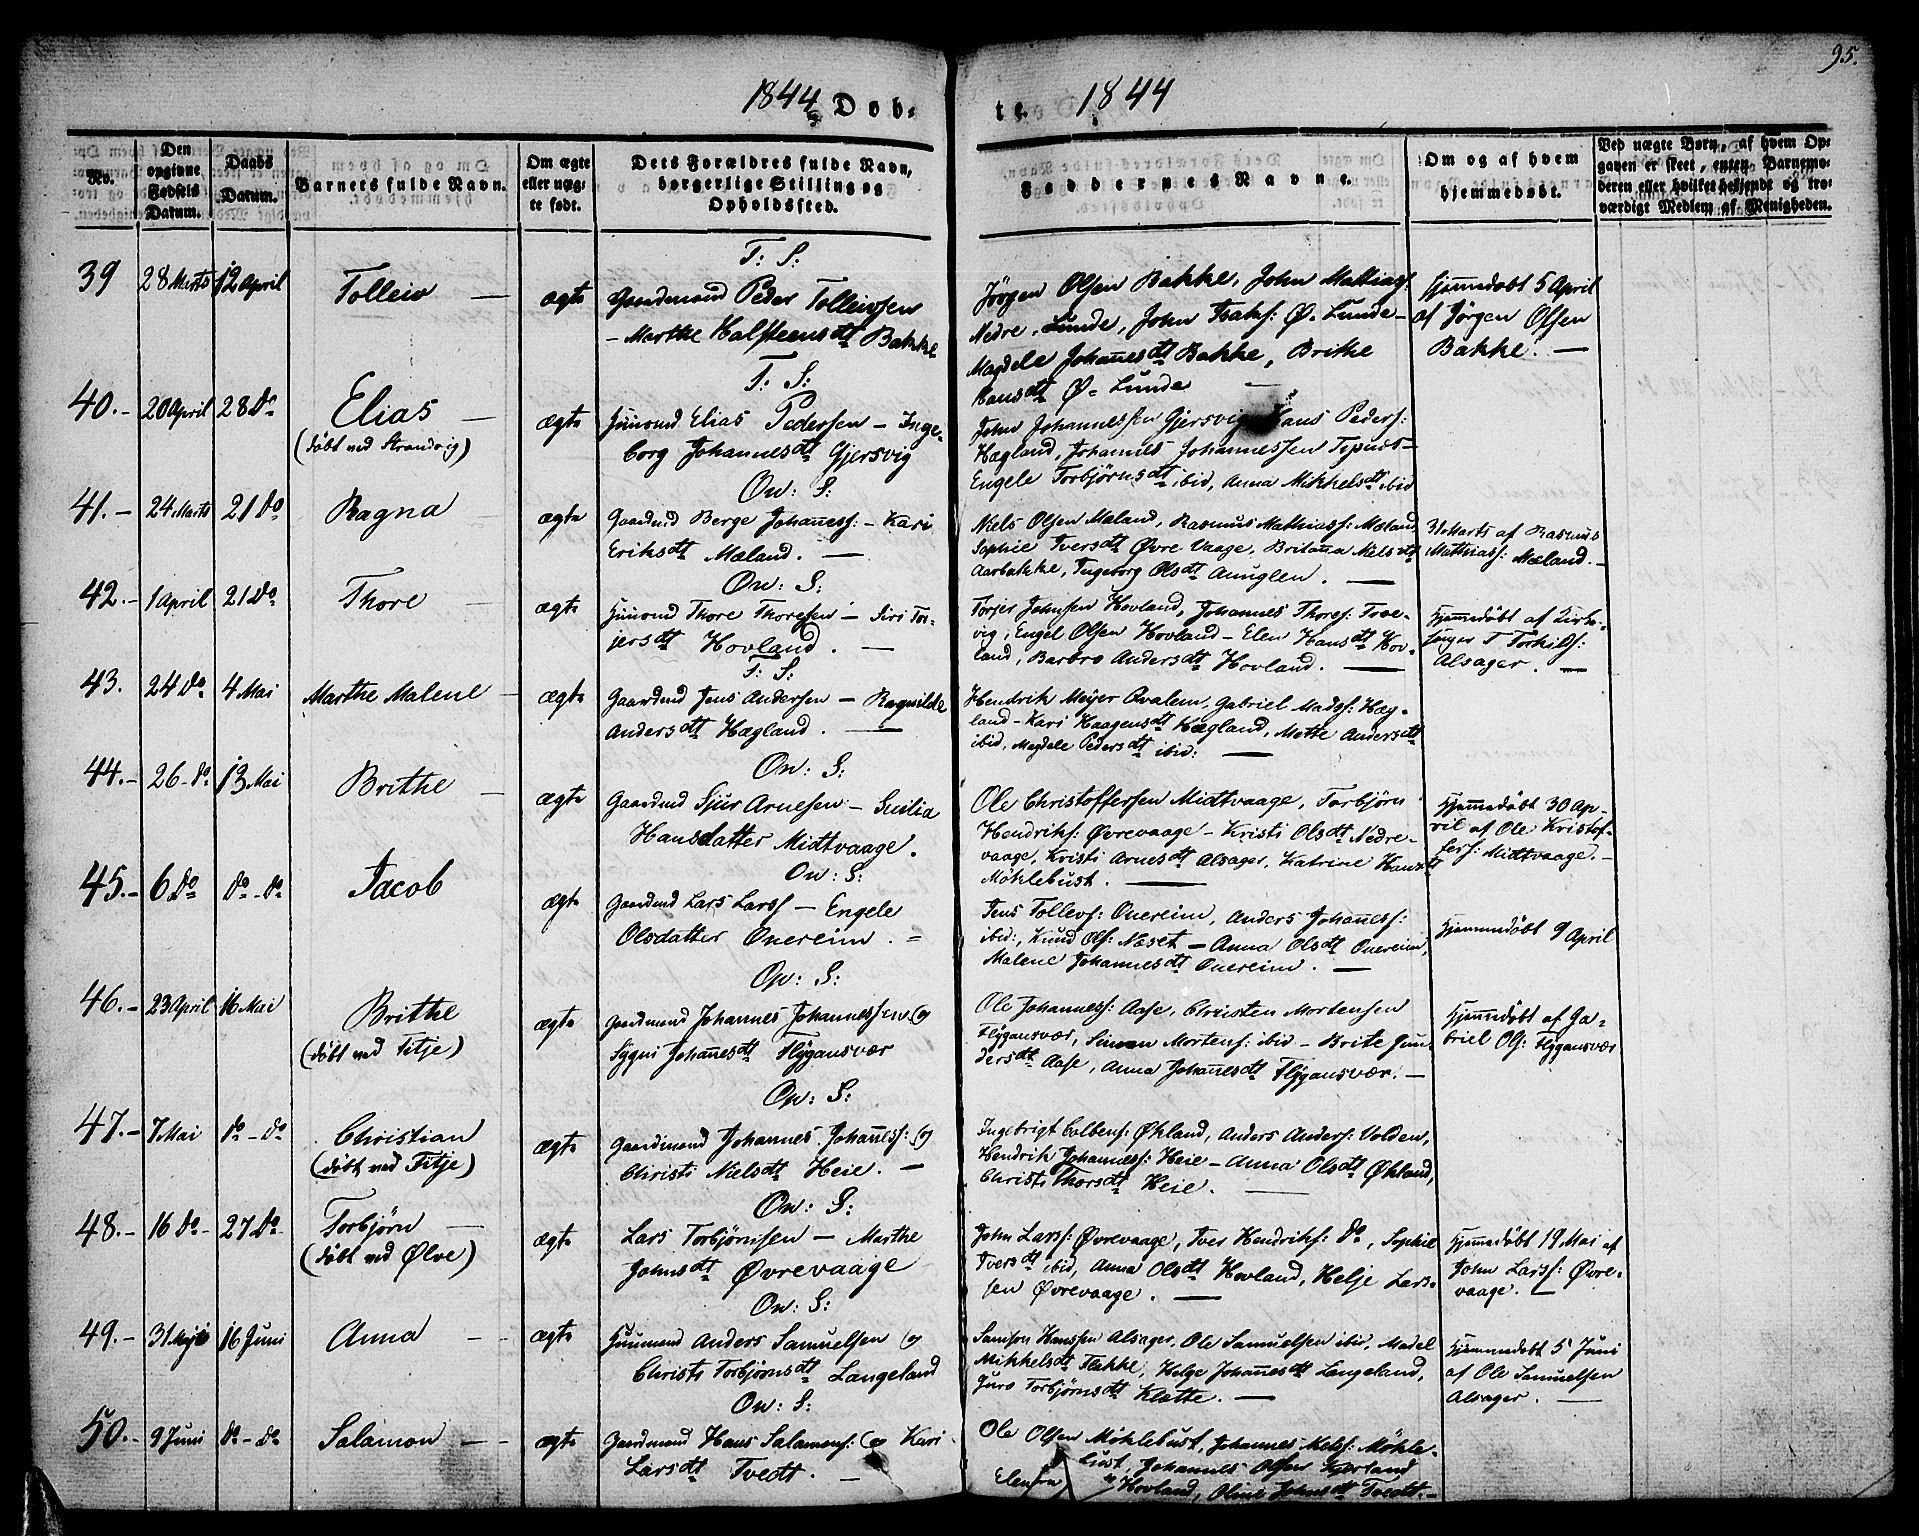 95.
1844 Døb-
te. 1844
No.
Den opgivne Fødsels Datum.
Daabs Datum.
Barnets fulde Navn.
Om ægte eller uægte født.
Dets Forældres fulde Navn, borgerlige Stilling og Opholdssted.
Faddernes Navne.
Om og af hvem hjemmedøbt.
Ved uægte Børn, af hvem Opgaven er skeet, enten Barnemoderen eller hvilket bekjendt og troværdigt Medlem af Menigheden.
T: S:
39 28 Marts 12 April Tolleiv — ægte Gaardmand Peder Tolleivsen
— Marthe Halsteensdtt Bakke
Jörgen Olsen Bakke, John Mathias:
Nedre Lunde, John Isaks: Ø. Lunde —
Magdele Johannesdtt Bakke, Brithe
Hansdtt Ø. Lunde
Hjemmedøbt 5 April
af Jørgen Olsen
Bakke. —
T: S:
40.- 20 April 28 do Elias — ægte Huusmd Elias Pedersen — Inge-
(døbt ved Strandvig)
borg Johannesdtt Gjersvig
John Johannessen Gjersvig, Hans Peders:
Hægland, Johannes Johannessen
Engele Torbjörnsdtt ibid, Anna Mikkelsdtt ibid
Ow: S:
41.- 24 Marts 21 do Ragna ægte Gaardmd Berge Johaness: — Kari
Eriksdtt Mæland. —
Niels Olsen Mæland, Rasmus Mathiass: Mæland
Sophie Iversdtt Øvre Vaage, Britanna Nielsdtt
Aarbakke, Ingeborg Olsdtt Aunglen. —
31 Marts af Rasmus
Matthias: Mæland. —
Ow: S:
42.- 1 April 21 do Thore — ægte Huusmd Thore Thoresen — Siri Tor-
jersdtt Hovland. —
Torjer Johnsen Hovland, Johannes Thores: Tve-
vig, Engel Olsen Hovland — Elen Hansdtt Hov-
land, Barbro Andersdtt Hovland. —
Hjemmedøbt af Kirke-
sanger T Torkils:
Alsager. —
T: S:
43. 24 do 4 Mai Marthe Malene — ægte Gaardmd Jens Andersen — Ragnilde
Andersdtt Hægland. —
Hendrik Meyer Qvalem, Gabriel Madss: Hæg-
land — Kari Haagensdtt Hægland, Mette Andersdtt
ibid, Magdele Pedersdtt ibid: —
Ow: S:
44.- 26 - do 13 Mai Brithe — ægte Gaardmd Sjur Arnesen — Sicilia
Hansdatter Midtvaage.
Ole Christoffersen Midtvaage, Torbjörn
Hendriks: Øvrevaage — Kristi Olsdtt Nedre-
vaage, Kristi Arnesdtt Alsager, Katrine Hansdtt
Möklebust. —
Hjemmedøbt 30 Ap-
ril af Ole Kristof-
fers: Midtvaage. —
Ow: S:
45.- 6 do do - do Jacob ægte Gaardmd Lars Larss — Engele
Olsdatter Onereim. =
Jens Tollevs: Onereim, Anders Johaness:
ibid:, Knud Ols: Næset — Anna Olsdtt Onereim,
Malene Johannesdtt Onereim. —
Hjemmedøbt 9 April
Op: S:
46.- 23 April 16 Mai Brithe ægte Gaardmand Johannes Johannessen og
(døbt ved Fitje)
Sygni Johannesdtt Flygansvær
Ole Johanness: Aase, Christen Mortensen
Flygansvær, Simon Mortens: ibid — Brite Gun-
dersdtt Aase, Anna Johannesdtt Flygansvær. —
Hjemmedøbt af Ga-
briel Ols: Flygansvær
Op: S:
47.- 7 Mai do - do Christian ægte Gaardmand Johannes Johaness: og
(døbt ved Fitje)
Christi Nielsdtt Heie. —
Ingebrigt Colbens: Økland, Anders Anders: Volden,
Hendrik Johanness: Heie — Anna Olsdtt Økland,
Christi Thorsdtt Heie. —
Ow: S:
48.- 16 do - 27 do - Torbjørn — ægte Lars Torbjörnsen — Marthe
(døbt ved Ølve)
Johnsdtt Øvrevaage
John Larss: Øvrevaage, Iver Hendriks: do, Sophie
Iversdtt ibid, Anna Olsdtt Hovland, Helje Lars-
sen Øvrevaage. —
Hjemmedøbt 19 Mai af
John Larss: Øvre-
vaage. —
Ow: S:
49.- 31 Maji 16 Juni Anna — ægte Huusmand Anders Samuelsen og
Christi Torbjörnsdtt Langeland
Samson Hanssen Alsager, Ole Samuelsen ibid, Madel
Mikkelsdtt Flakke, Helge Johannesdtt Langeland,
Guro Torbjörnsdtt Kløtte. —
Hjemmedøbt 5 Juni
af Ole Samuelsen
Alsager. —
Ow: S:
50.- 9 Juni do - do Salamon — ægte Gaardmand Hans Salamons: og Kari
Larsdtt Tvedt. —
Ole Olsen Möklebust, Johannes Nels: Mökle-
bust, Johannes Olsen Gjerland
Elen Hovland, Oline Johnsdtt Tvedt. —